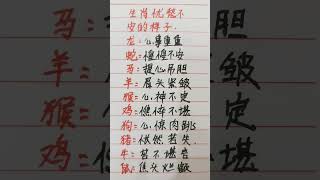 生肖忧愁不
安的样子.
龙:心事重重
蛇:惶惶不安
马:提心吊胆
羊:眉头紧皱
猴:心神不定
鸡:憔悴不堪
狗:心惊肉跳
猪:怅然若失.
牛:苦不堪言
鼠:焦头烂额